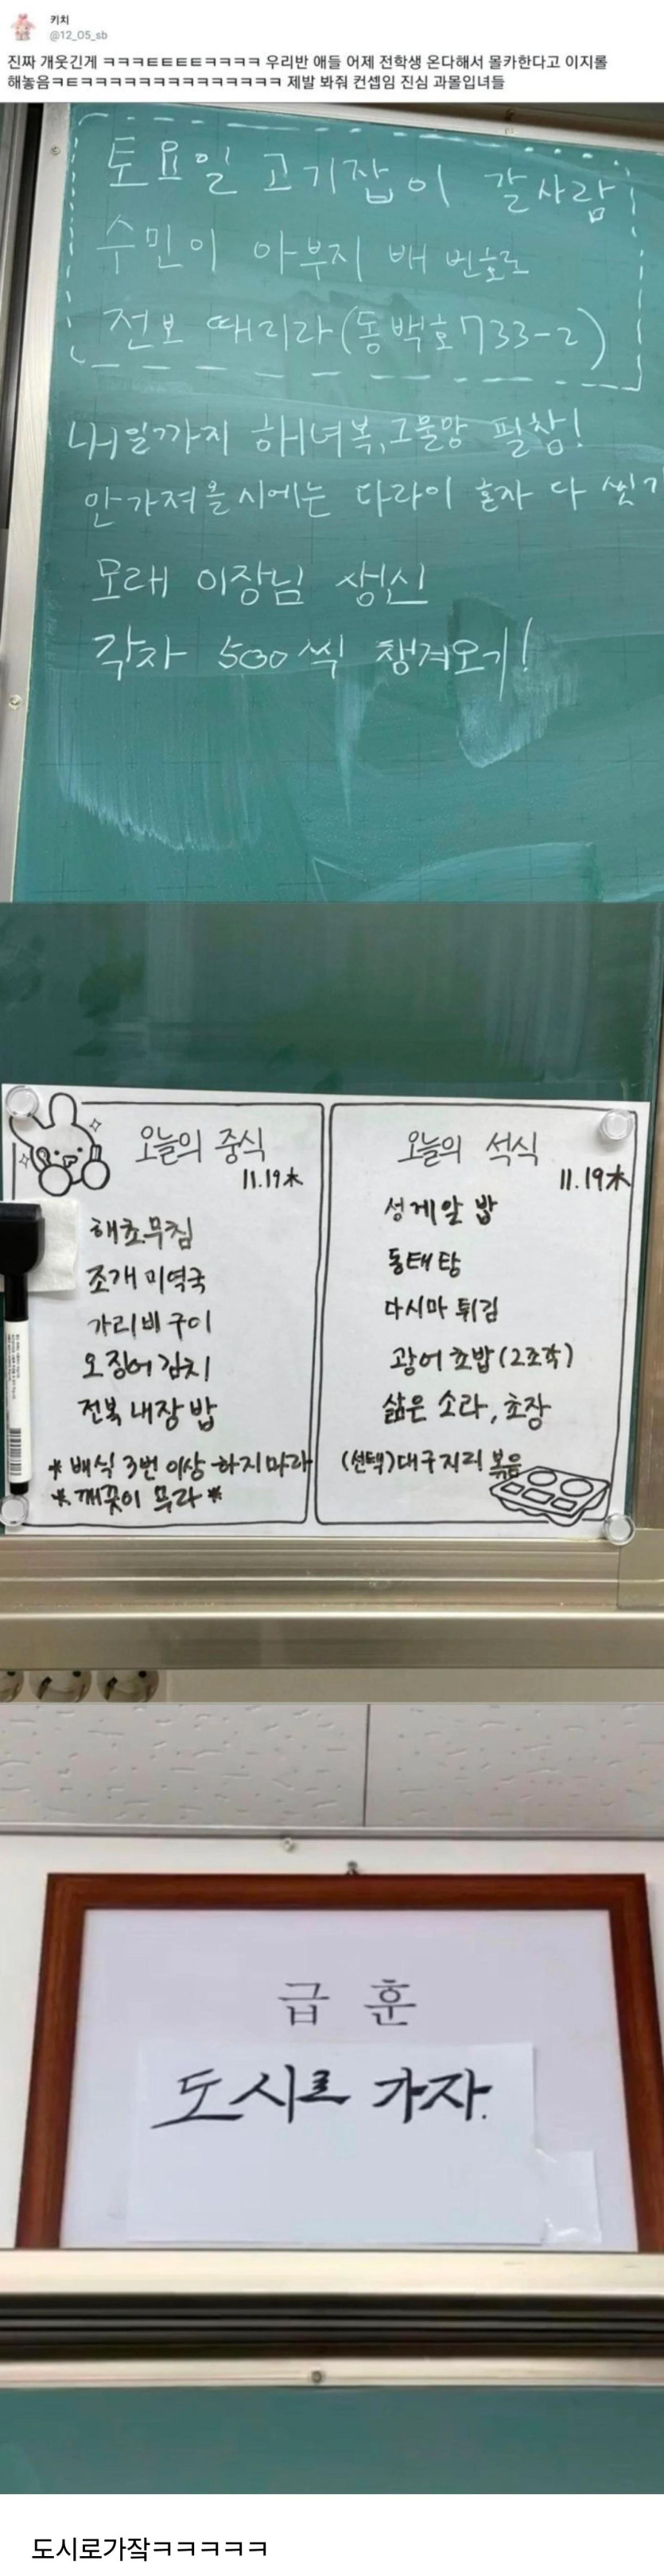 키치
@12_05_sb
진짜 개웃긴게 ㅋㅋㅋㅌㅌㅌㅌㅋㅋㅋㅋ 우리반 애들 어제 전학생 온다해서 몰카한다고 이지롤
해놓음ㅋㅌㅋㅋㅋㅋㅋㅋㅋㅋㅋㅋㅋㅋㅋㅋㅋ 제발 봐줘 컨셉임 진심 과몰입녀들
토요일 고기잡이 갈 사람
수민이 아부지 배 번호로
전보 때리라(동백호 733-2)
내일까지 해녀복,그물망 필참!
안가져올시에는 다라이 혼자 다 씻기
모레 이장님 생신
각자 500씩 챙겨오기!
오늘의 중식
11.19木
해초무침
조개 미역국
가리비 구이
오징어 김치
전복 내장 밥
* 배식 3번 이상 하지마라
* 깨끗이 무라 *
오늘의 석식
11.19木
성게알 밥
동태탕
다시마 튀김
광어 초밥(2조각)
삶은 소라, 초장
(선택)대구지리 볶음
급 훈
도시로 가자.
도시로가잨ㅋㅋㅋㅋㅋ